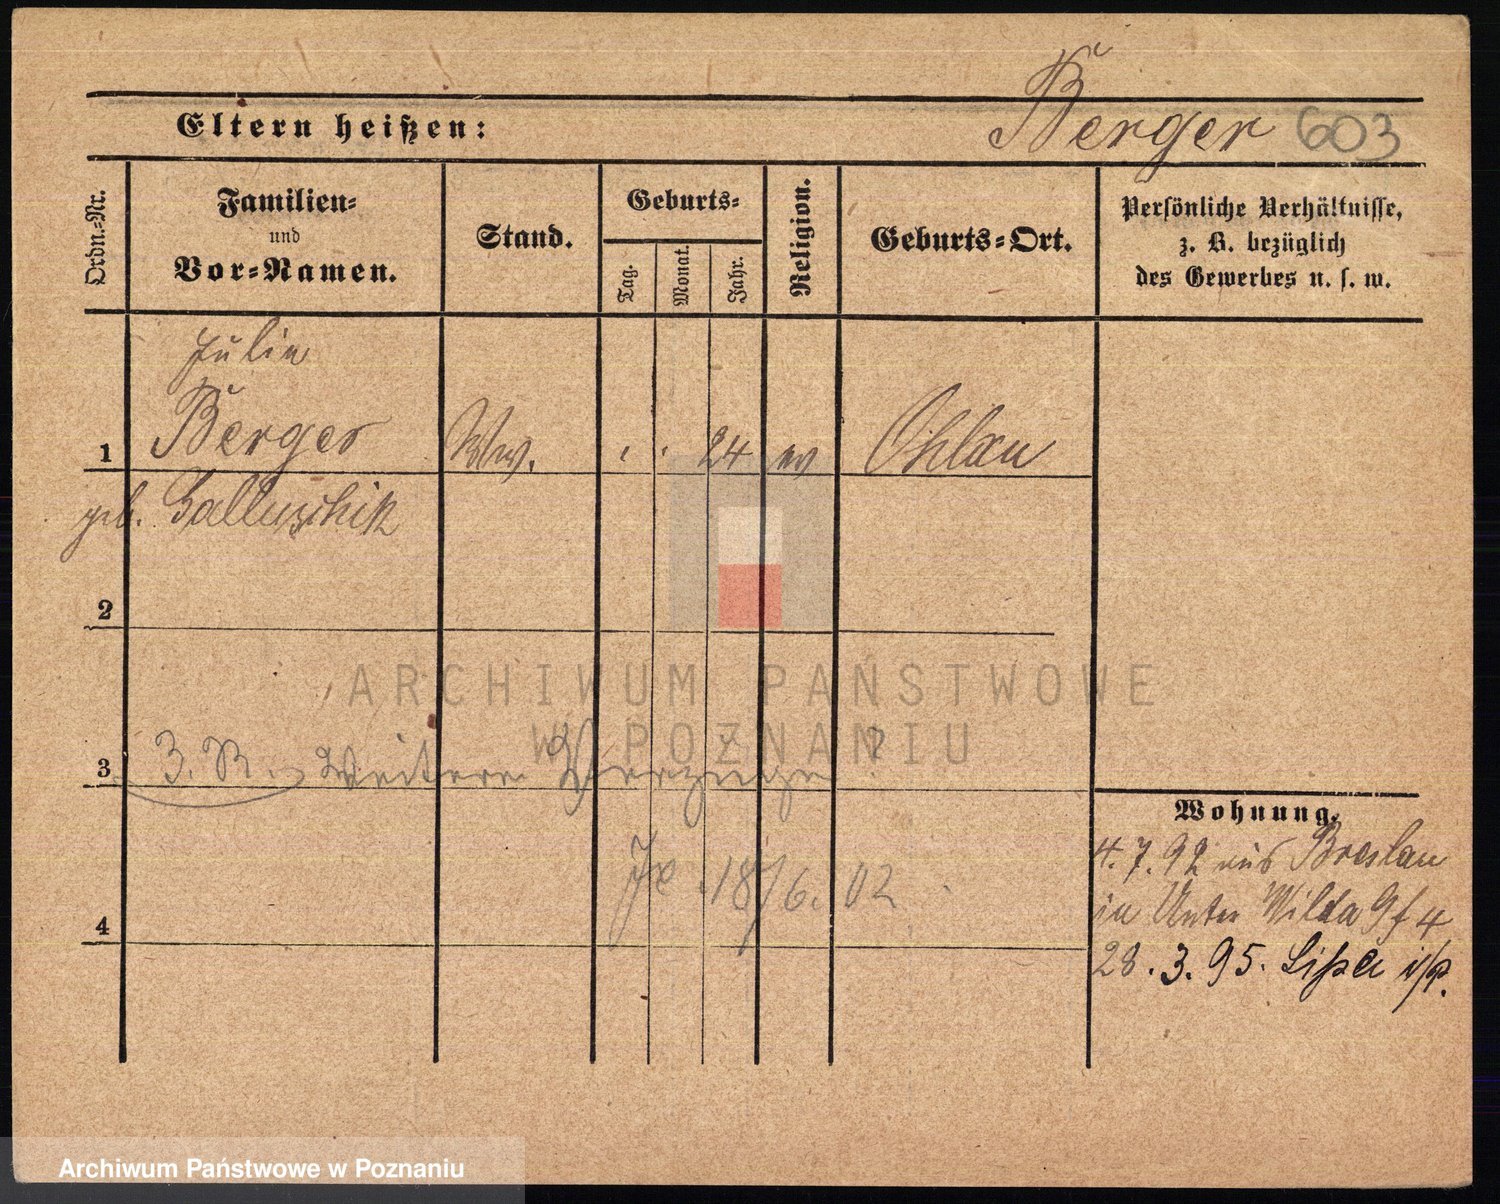 Berger 603
Eltern heißen:
Ordn.-Nr.
Familien-
und
Vor-Namen.
Stand.
Geburts-
Tag.
Monat.
Jahr.
Religion.
Geburts-Ort.
Persönliche Verhältnisse,
z. B. bezüglich
des Gewerbes u. s. w.
Julie
1 Berger Ww. 24 ev Ohlau
geb. Galluschik
2
ARCHIWUM PAŃSTWOWE
W POZNANIU
3 3. R. Weitere Verzüge ?
Wohnung.
4.7.92 aus Breslau
18/6. 02
in Unter Wilda 4
4
28.3.95. Lissa i/P.
Archiwum Państwowe w Poznaniu